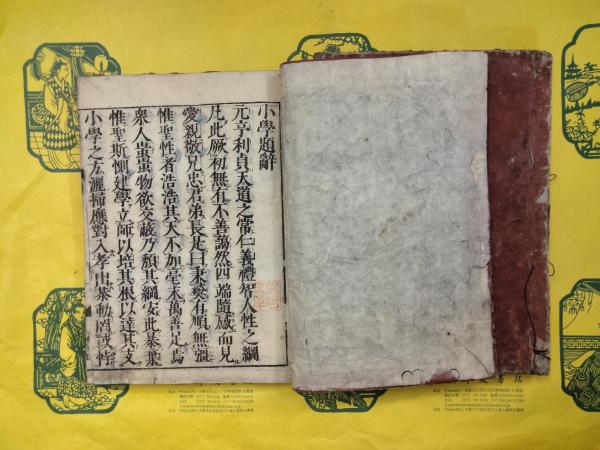 小學題辭
元亨利貞天道之常仁義禮智人性之綱
凡此厥初無有不善藹然四端隨感而見
愛親敬兄忠君弟長是曰秉彝有順無彊
惟聖性者浩浩其天不加毫末萬善足焉
衆人蚩蚩物欲交蔽乃頹其綱安此暴棄
惟聖斯惻建學立師以培其根以達其支
小學之方灑掃應對入孝出恭動罔或悖